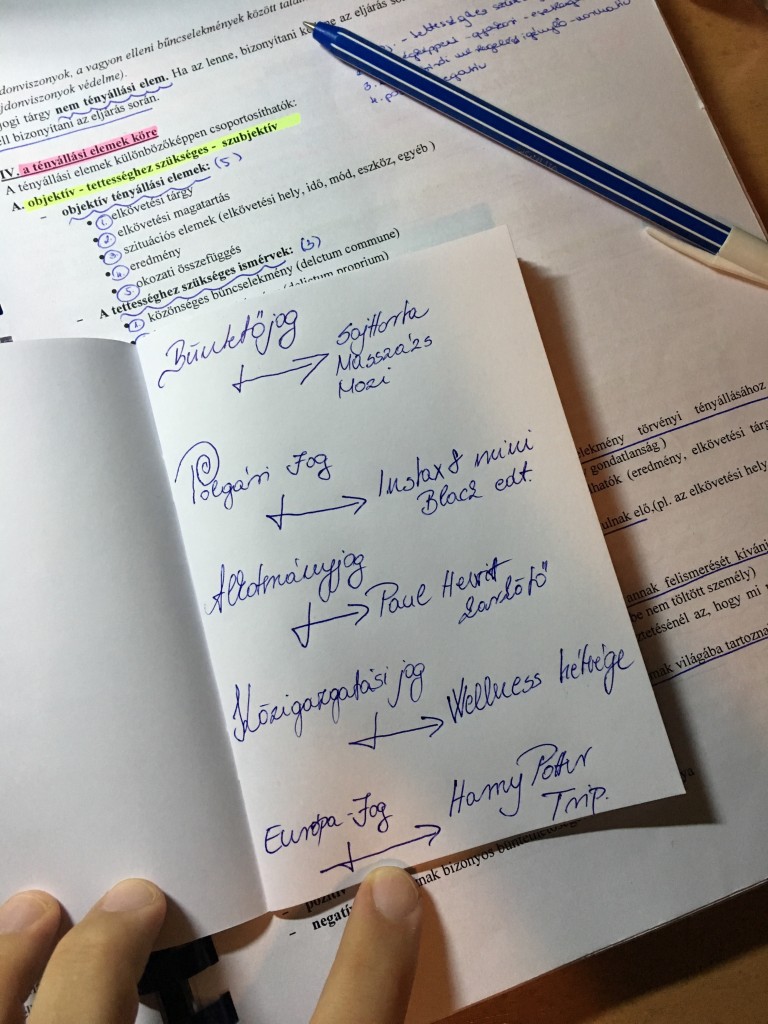 donviszonyok, a vagyon elleni bűncselekmények között talál
jdonviszonyok védelme).
jogi tárgy nem tényállási elem. Ha az lenne, bizonyítani az eljárás
ell bizonyítani az eljárás során.
IV. a tényállási elemek köre
A tényállási elemek különbözőképpen csoportosíthatók:
A. objektív - tettességhez szükséges - szubjektív
- objektív tényállási elemek: (5)
1. elkövetési tárgy
2. elkövetési magatartás
3. szituációs elemek (elkövetési hely, idő, mód, eszköz, egyéb )
4. eredmény
5. okozati összefüggés
- A tettességhez szükséges ismérvek: (3)
1. közönséges bűncselekmény (delctum commune)
(delictum proprium)
Büntetőjog
Sajttorta
Masszázs
Mozi
Polgári Jog
Instax 8 mini
Black edt.
Alkotmányjog
Paul Hewit
karkötő
Közigazgatási jog
Wellness hétvége
Európa-Jog
Harry Potter
Trip.
elekmény törvényi tényállásához
gondatlanság)
hatók (eredmény, elkövetési tárg
ulnak elő,(pl. az elkövetési hely
annak felismerését kíván
be nem töltött személy)
tetésénél az, hogy mi
nak világába tartozna
- pozitív
nak bizonyos
- negatív